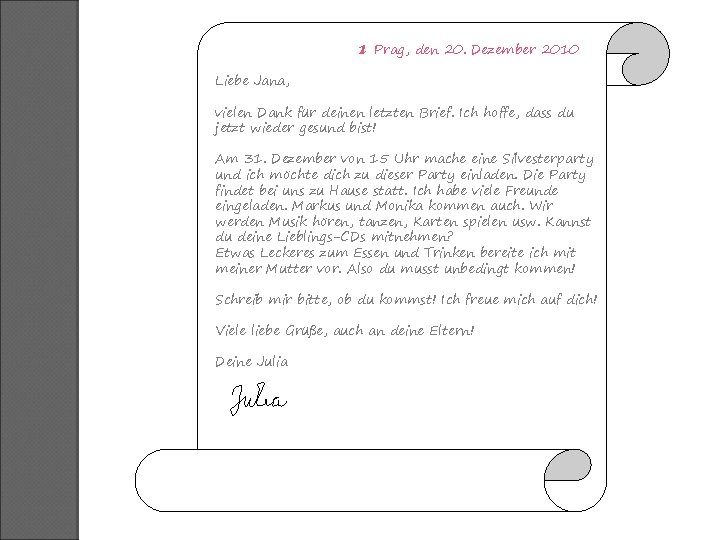 1 Prag, den 20. Dezember 2010
Liebe Jana,
vielen Dank für deinen letzten Brief. Ich hoffe, dass du
jetzt wieder gesund bist!
Am 31. Dezember von 15 Uhr mache eine Silvesterparty
und ich möchte dich zu dieser Party einladen. Die Party
findet bei uns zu Hause statt. Ich habe viele Freunde
eingeladen. Markus und Monika kommen auch. Wir
werden Musik hören, tanzen, Karten spielen usw. Kannst
du deine Lieblings-CDs mitnehmen?
Etwas Leckeres zum Essen und Trinken bereite ich mit
meiner Mutter vor. Also du musst unbedingt kommen!
Schreib mir bitte, ob du kommst! Ich freue mich auf dich!
Viele liebe Grüße, auch an deine Eltern!
Deine Julia
Julia